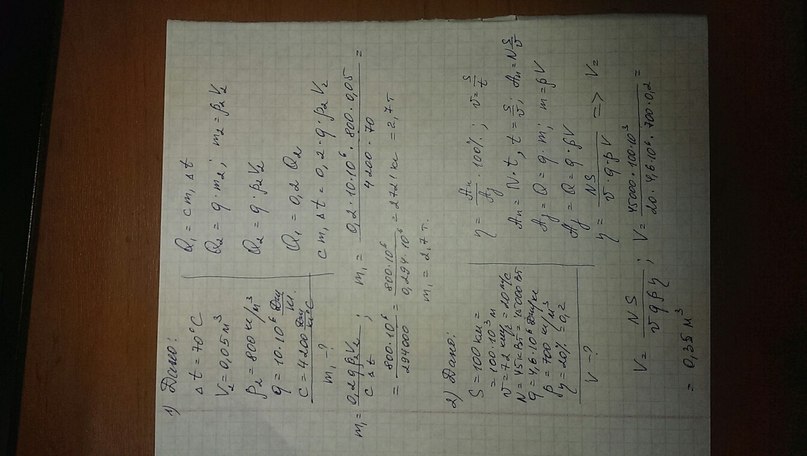 1) Дано:
Δt = 70°C
V₂ = 0,05 м³
ρ₂ = 800 кг/м³
q = 10·10⁶ Дж/кг
c = 4200 Дж/кг°C
m₁ - ?
Q₁ = cm₁Δt
Q₂ = q·m₂; m₂ = ρ₂V₂
Q₂ = q·ρ₂V₂
Q₁ = 0,2 Q₂
cm₁Δt = 0,2·q·ρ₂V₂
m₁ = 0,2qρ₂V₂ / cΔt; m₁ = 0,2·10·10⁶·800·0,05 / 4200·70 =
= 800·10⁶ / 294000 = 800·10⁶ / 0,294·10⁶ = 2721 кг = 2,7 т
m₁ = 2,7 т.
2) Дано:
S = 100 км =
= 100·10³ м
v = 72 км/ч = 20 м/с
N = 45 кВт = 45000 Вт
q = 4,6·10⁶ Дж/кг
ρ = 700 кг/м³
η = 20% = 0,2
V - ?
η = Aп / Aз · 100%; v = S/t
Aп = N·t, t = S/v; Aп = N S/v
Aз = Q = q·m; m = ρV
Aз = Q = q·ρV
η = NS / v·q·ρV => V =
V = NS / vqρη; V = 45000·100·10³ / 20·4,6·10⁶·700·0,2 =
= 0,35 м³